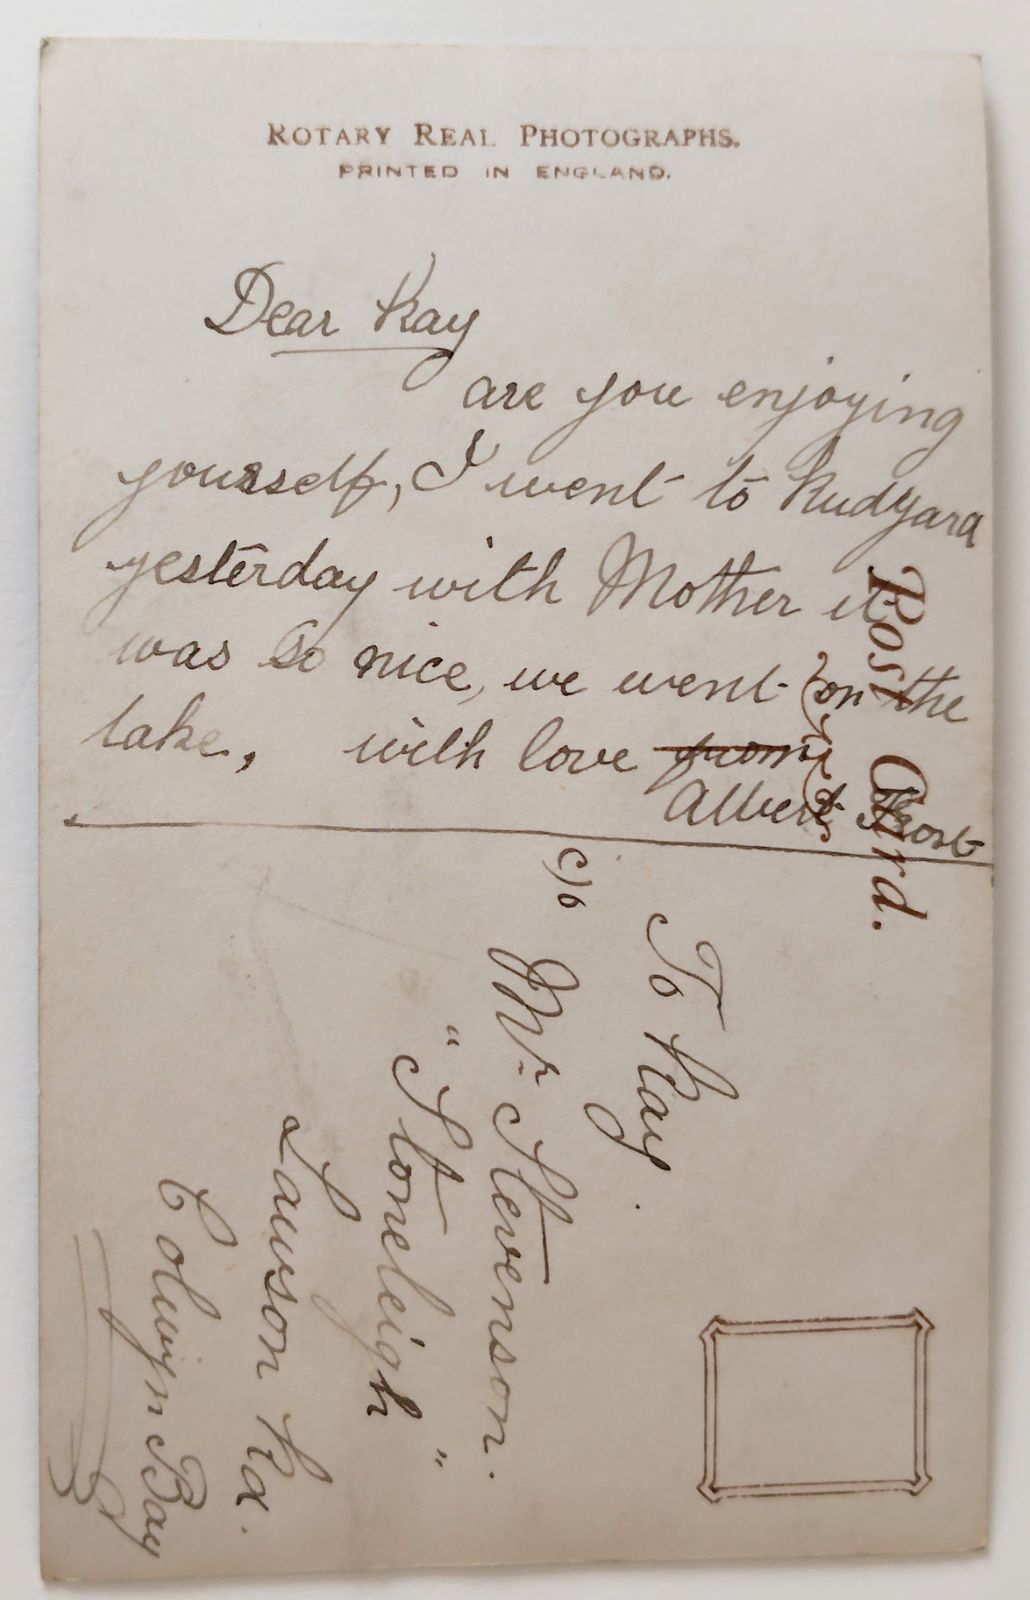 ROTARY REAL PHOTOGRAPHS.
PRINTED IN ENGLAND.
Post Card.
Dear Kay
are you enjoying
yourself, I went to Rudyard
yesterday with Mother it
was so nice, we went on the
lake, with love from
Albert
To Kay.
c/o Mr Stevenson.
"Stoneleigh"
Lawson Rd.
Colwyn Bay